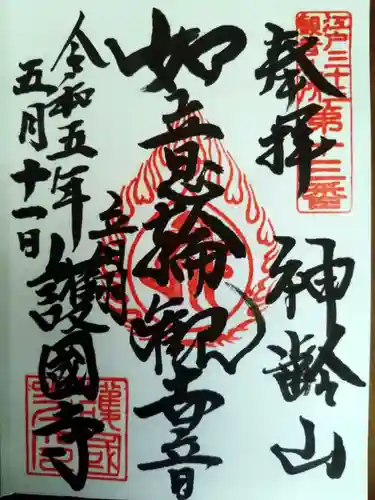 奉拝
江戸三十三
観音札所第十三番
神齢山
如意輪観世音
令和五年
五月十一日
護國寺